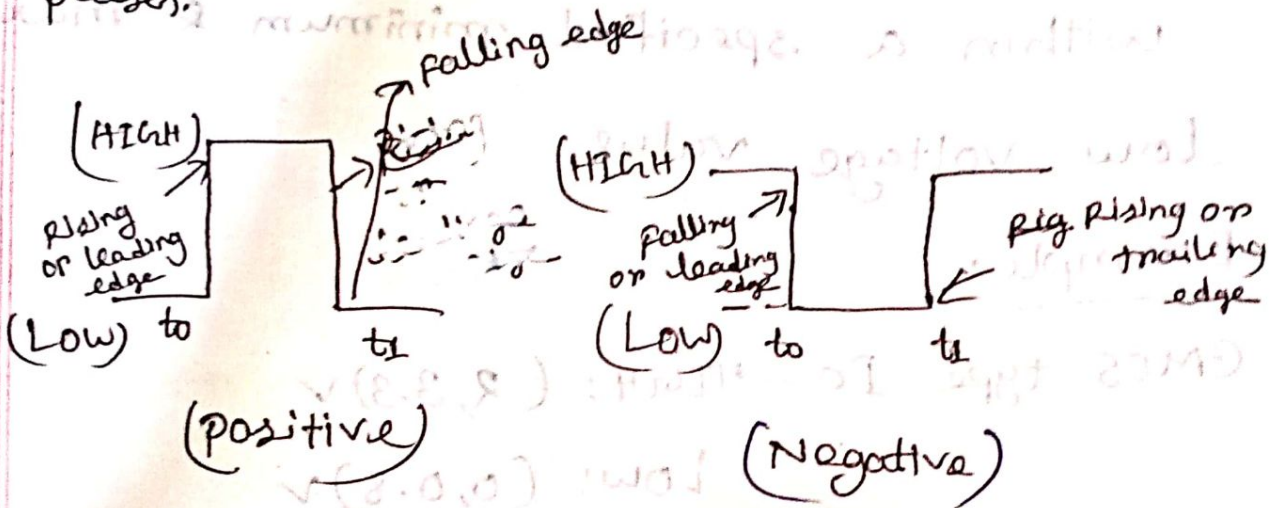 Falling edge
(HIGH)
Rising
or leading
edge
(LOW) t0
t1
(Positive)
(HIGH)
Falling
or leading
edge
(LOW) t0
t1
Rising or
trailing
edge
(Negative)